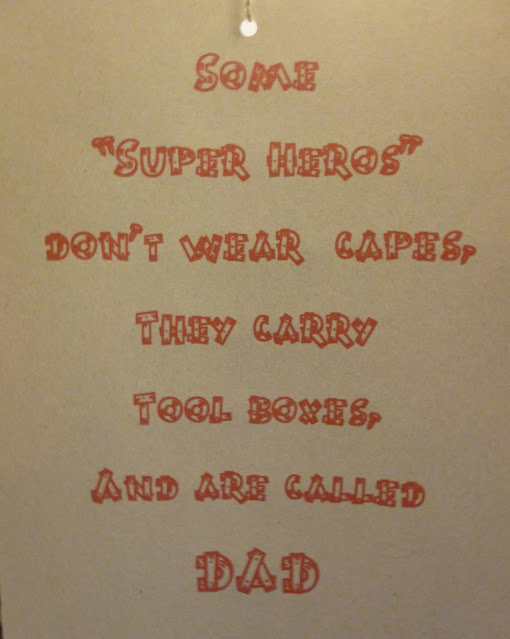 Some
"Super Heros"
don't wear capes,
They carry
Tool boxes,
And are called
DAD